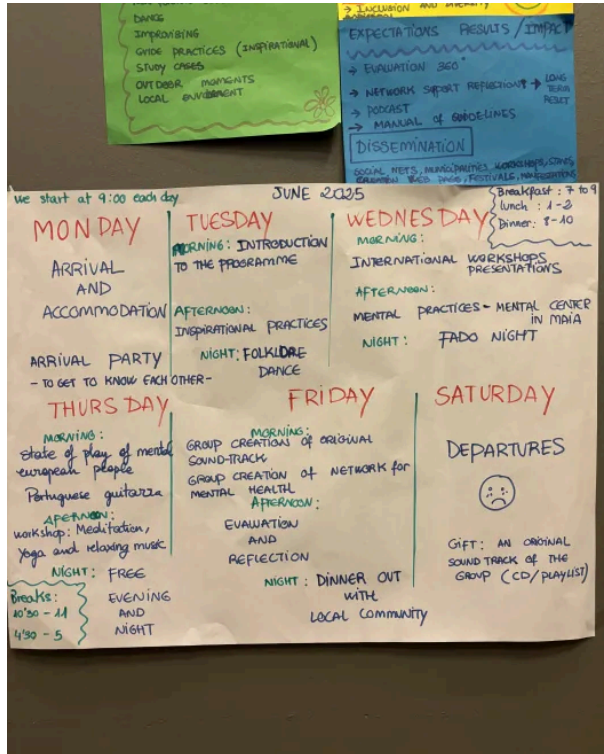 DANCE
IMPROVISING
GUIDE PRACTICES (INSPIRATIONAL)
STUDY CASES
OUTDOOR MOMENTS
LOCAL ENVIRONMENT
→ INCLUSION AND DIVERSITY
EXPECTATIONS RESULTS / IMPACT
→ EVALUATION 360°
→ NETWORK SUPPORT REFLECTIONS → LONG
TERM
RESET
→ PODCAST
→ MANUAL of GUIDELINES
DISSEMINATION
SOCIAL NETS, MUNICIPALITIES, WORKSHOPS,
WEB PAGE, FESTIVALS,
we start at 9:00 each day
JUNE 2025
Breakfast: 7 to 9
lunch: 1-2
Dinner: 8-10
MONDAY
ARRIVAL
AND
ACCOMMODATION
ARRIVAL PARTY
- TO GET TO KNOW EACH OTHER -
TUESDAY
MORNING: INTRODUCTION
TO THE PROGRAMME
AFTERNOON:
INSPIRATIONAL PRACTICES
NIGHT: FOLKLORE
DANCE
WEDNESDAY
MORNING:
INTERNATIONAL WORKSHOPS
PRESENTATIONS
AFTERNOON:
MENTAL PRACTICES - MENTAL CENTER
IN MAIA
NIGHT: FADO NIGHT
THURSDAY
MORNING:
state of play of mental
european people
Portuguese guitarra
AFTERNOON:
workshop: Meditation,
Yoga and relaxing music
NIGHT: FREE
EVENING
AND
NIGHT
Breaks:
10'30 - 11
4'30 - 5
FRIDAY
MORNING:
GROUP CREATION of ORIGINAL
SOUND-TRACK
GROUP CREATION of NETWORK for
MENTAL HEALTH
AFTERNOON:
EVALUATION
AND
REFLECTION
NIGHT: DINNER OUT
WITH
LOCAL COMMUNITY
SATURDAY
DEPARTURES
GIFT: AN ORIGINAL
SOUND TRACK of THE
GROUP (CD/PLAYLIST)